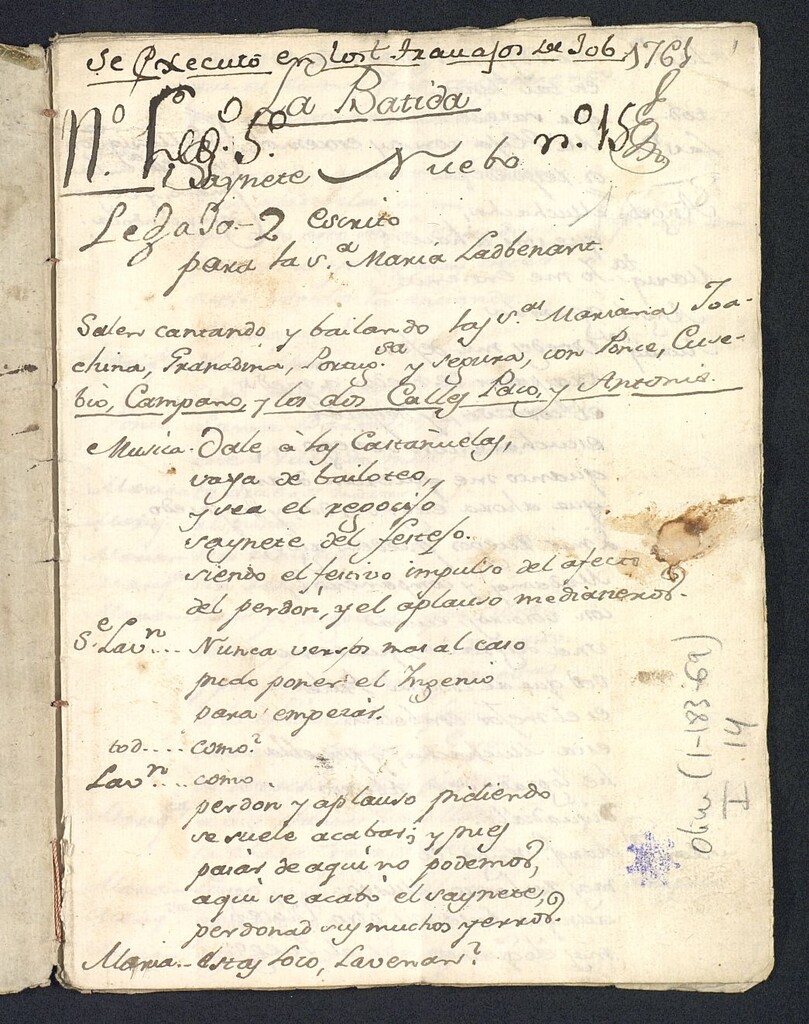 Se executo en los trauajos de Job. 1761
La Batida
N.º Leg.º 5.º n.º 15
Saynete Nuebo
Legajo- 2 escrito
para la s.ra Maria Ladbenant.
Salen cantando y bailando las s.as Mariana Joa-
china, Granadina, Portug.sa y segura, con Ponce, Euse-
bio, Campano, y los dos Calles Paco, y Antonio.
Musica. Dale â las Castañuelas,
vaya de bailoteo,
y sea el regocijo
saynete del festejo.
siendo el festivo impulso del afecto
del perdon, y el aplauso medianeros.
S.e Lav.n ... Nunca versos mas al caso
pudo poner el Ingenio
para empezar.
tod.... como?
Lav.n ... como
perdon y aplauso pidiendo
se suele acabar; y pues
pasar de aqui no podemos,
aqui se acabó el saynete,
perdonad sus muchos yerros.
Maria.- estas loco, Lavenan?
Obju (1-183-69)
I. 14